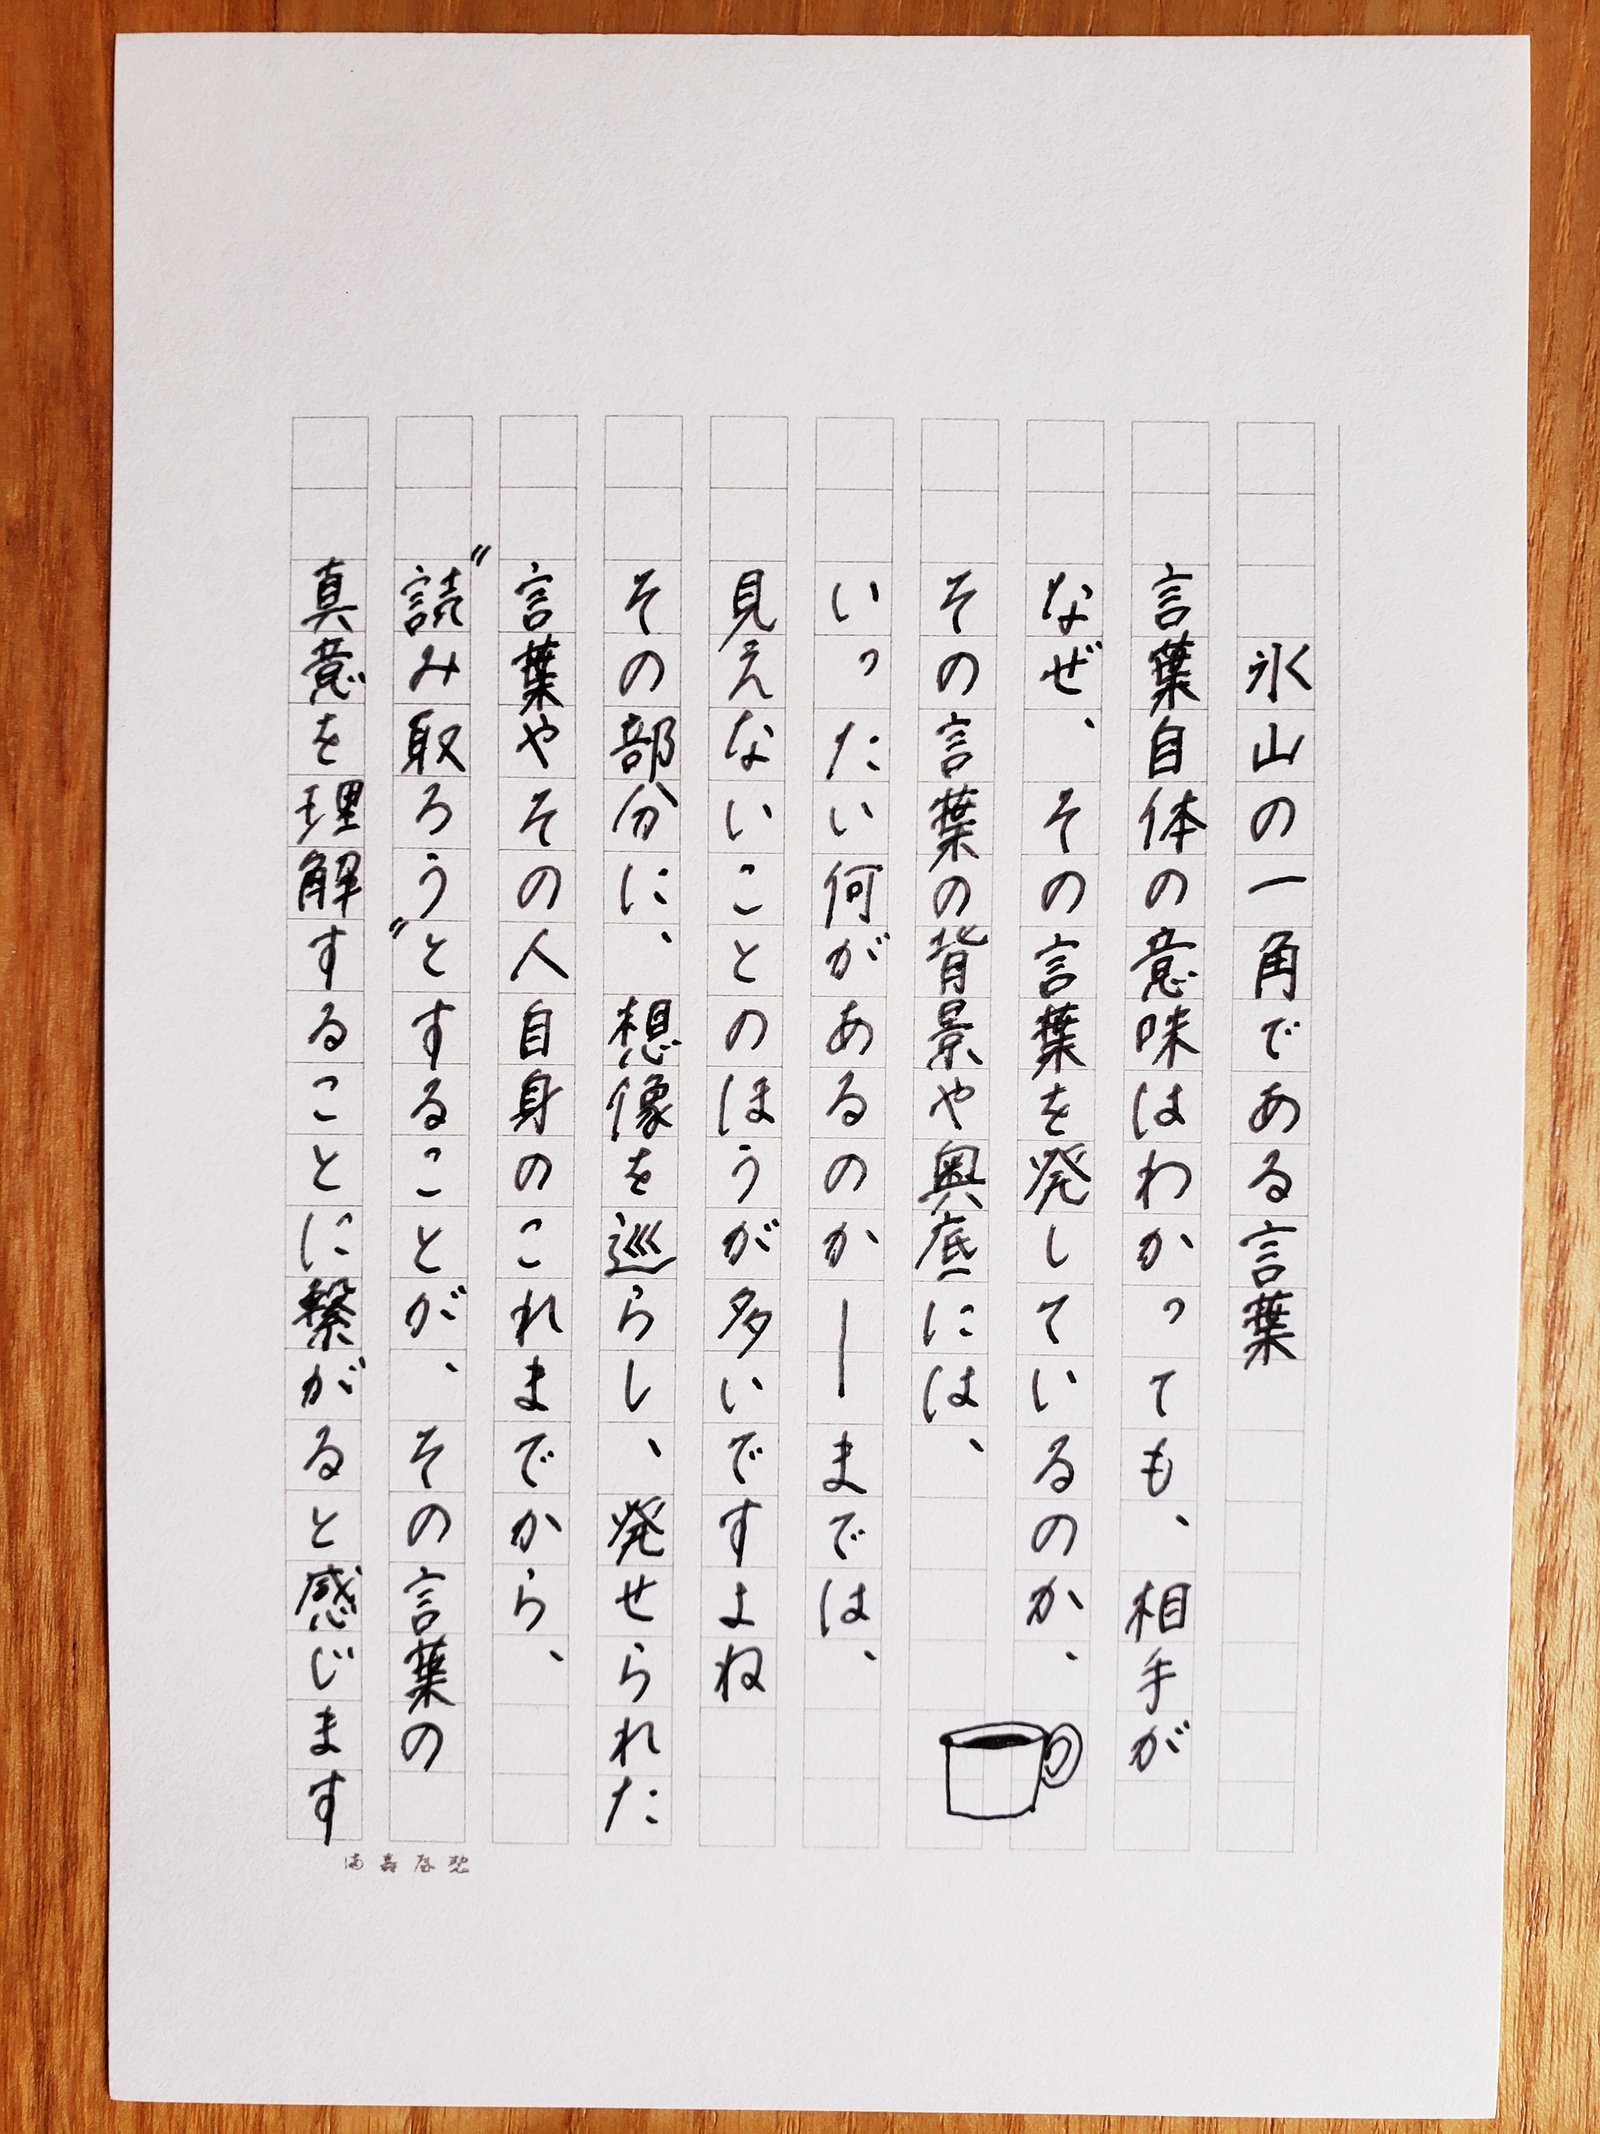 氷山の一角である言葉
言葉自体の意味はわかっても、相手が
なぜ、その言葉を発しているのか、
その言葉の背景や奥底には、
いったい何があるのか―までは、
見えないことのほうが多いですよね
その部分に、想像を巡らし、発せられた
言葉やその人自身のこれまでから、
〝読み取ろう〟とすることが、その言葉の
真意を理解することに繋がると感じます